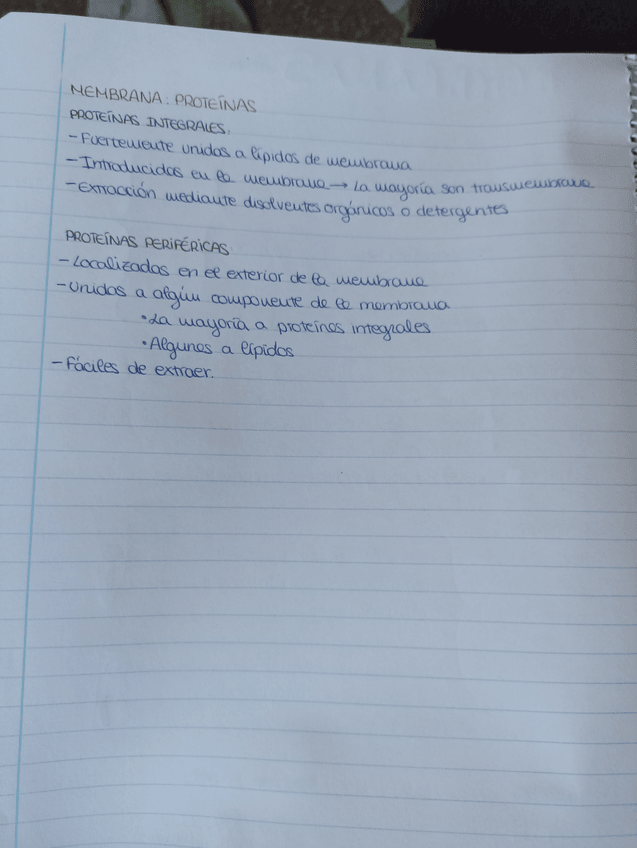 MEMBRANA: PROTEÍNAS
PROTEÍNAS INTEGRALES.
- Fuertemente unidas a lípidos de membrana
- Introducidas en la membrana → La mayoría son transmembrana
- Extracción mediante disolventes orgánicos o detergentes
PROTEÍNAS PERIFÉRICAS
- Localizadas en el exterior de la membrana
- Unidas a algún componente de la membrana
• La mayoría a proteínas integrales
• Algunas a lípidos
- Fáciles de extraer.